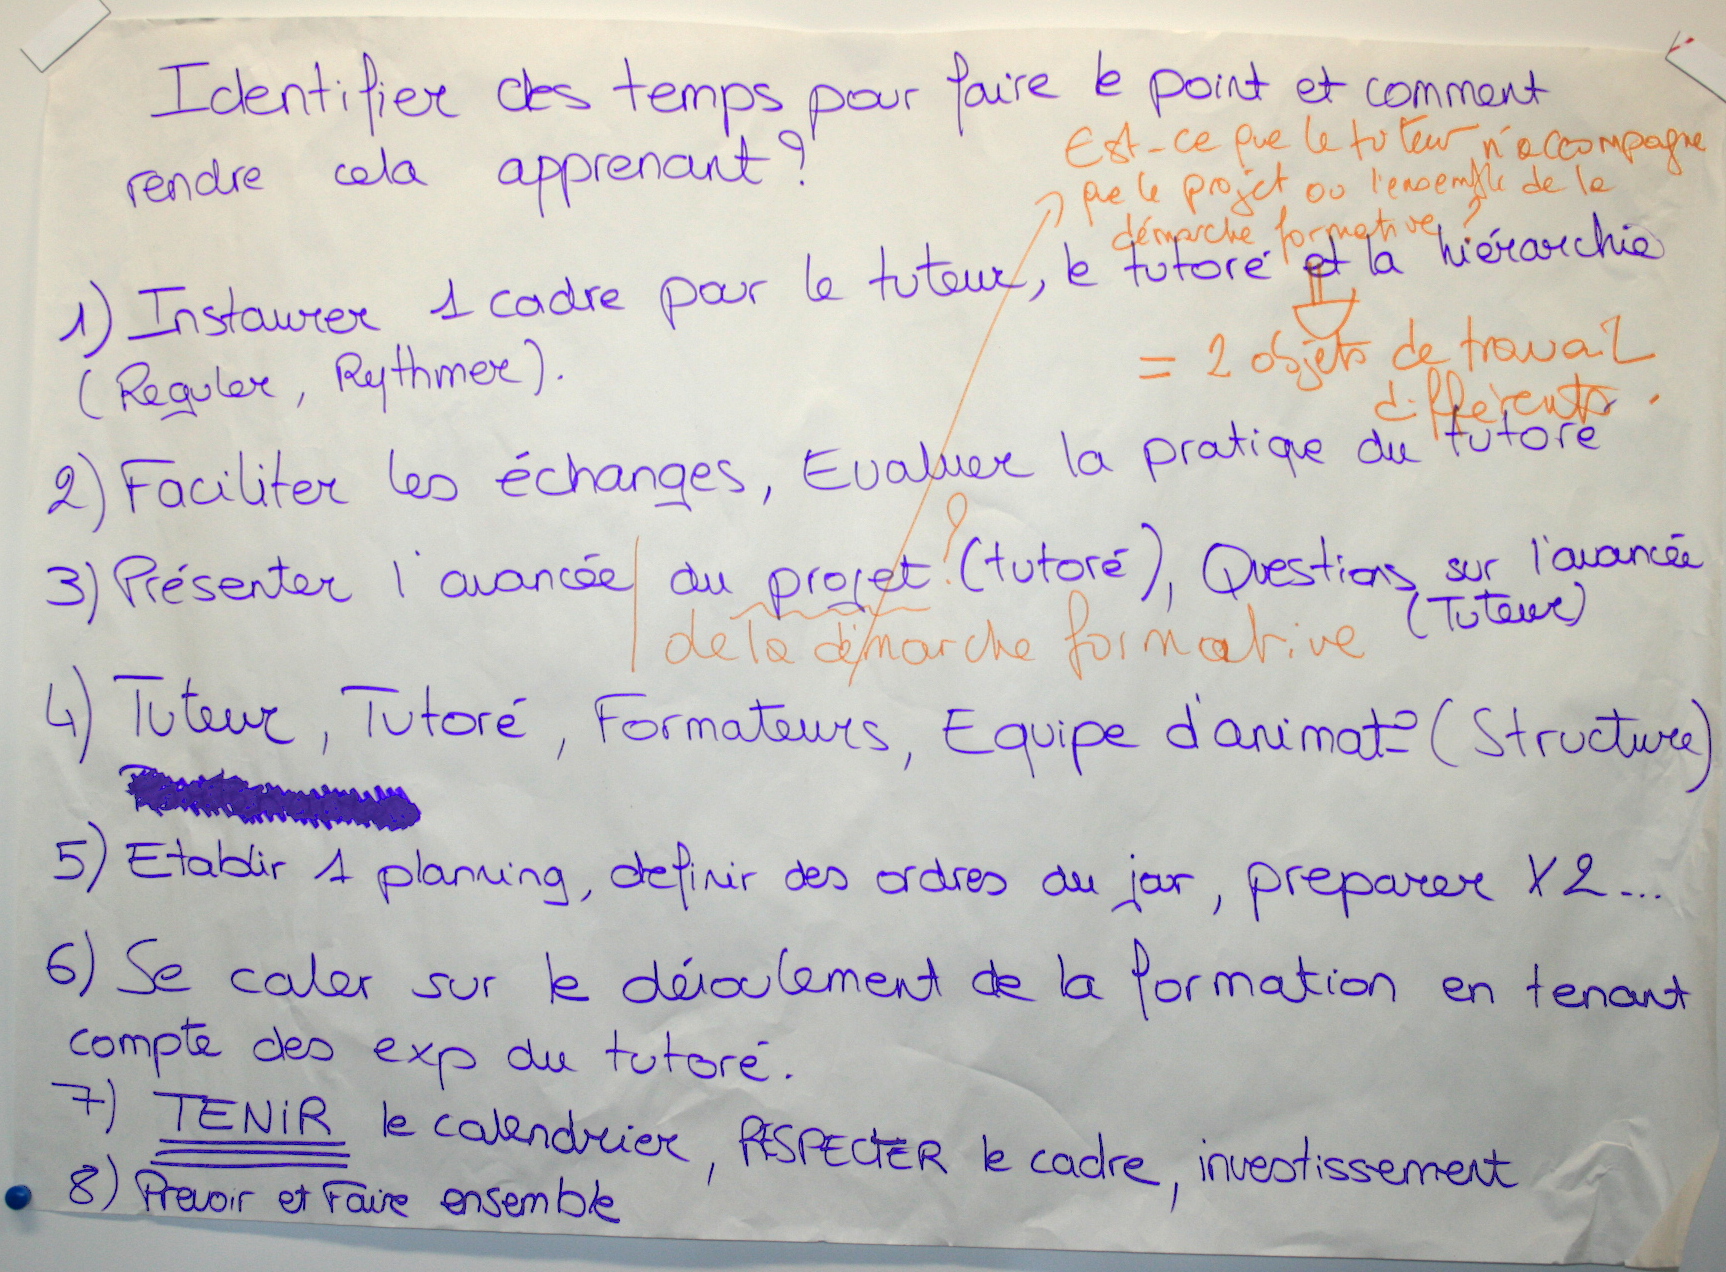 Identifier des temps pour faire le point et comment
rendre cela apprenant ?
Est-ce que le tuteur n'accompagne
que le projet ou l'ensemble de la
démarche formative ?
1) Instaurer 1 cadre pour le tuteur, le tutoré et la hiérarchie
(Reguler, Rythmer).
= 2 objets de travail
différents.
2) Faciliter les échanges, Evaluer la pratique du tutoré
3) Présenter l'avancée du projet ? (tutoré), Questions sur l'avancée
(Tuteur)
de la démarche formative
4) Tuteur, Tutoré, Formateurs, Equipe d'animat° (Structure)
5) Etablir 1 planning, definir des ordres du jour, preparer X2...
6) Se caler sur le déroulement de la formation en tenant
compte des exp du tutoré.
7) TENIR le calendrier, RESPECTER le cadre, investissement
8) Prevoir et Faire ensemble